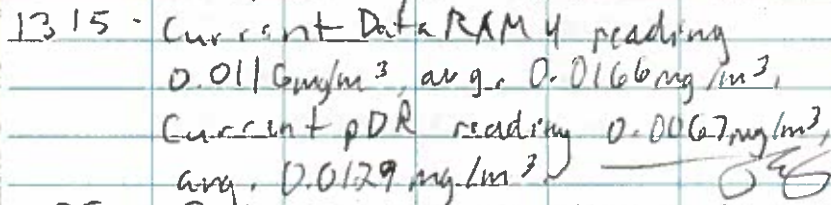 1315 - Current DataRAM 4 reading
0.0116mg/m³, avg. 0.0166 mg/m³,
Current pDR reading 0.0067mg/m³,
avg. 0.0129 mg/m³